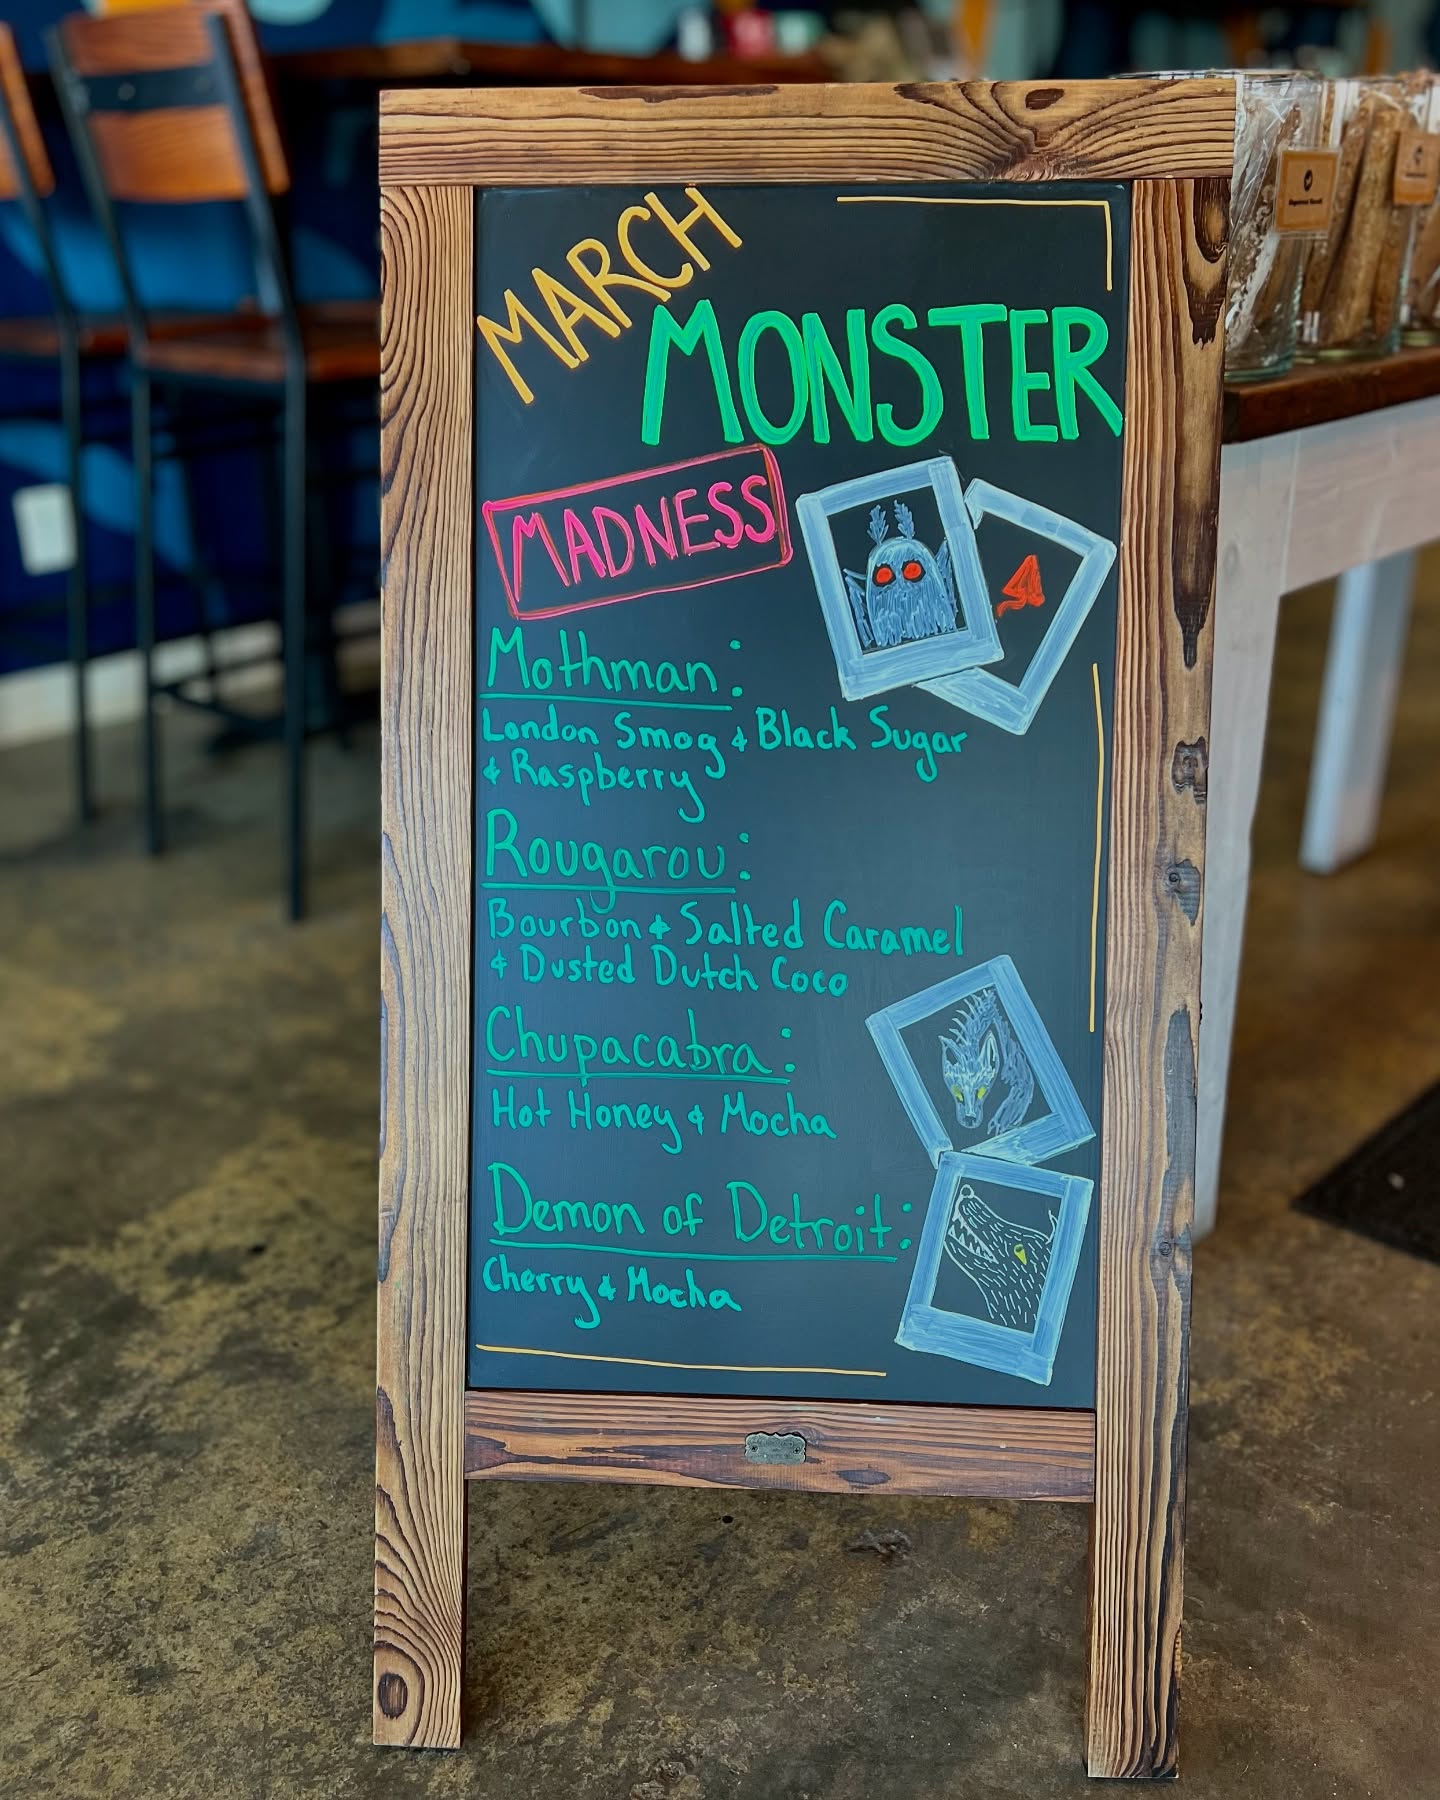 MARCH
MONSTER
MADNESS
Mothman:
London Smog & Black Sugar
& Raspberry
Rougarou:
Bourbon & Salted Caramel
& Dusted Dutch Coco
Chupacabra:
Hot Honey & Mocha
Demon of Detroit:
Cherry & Mocha